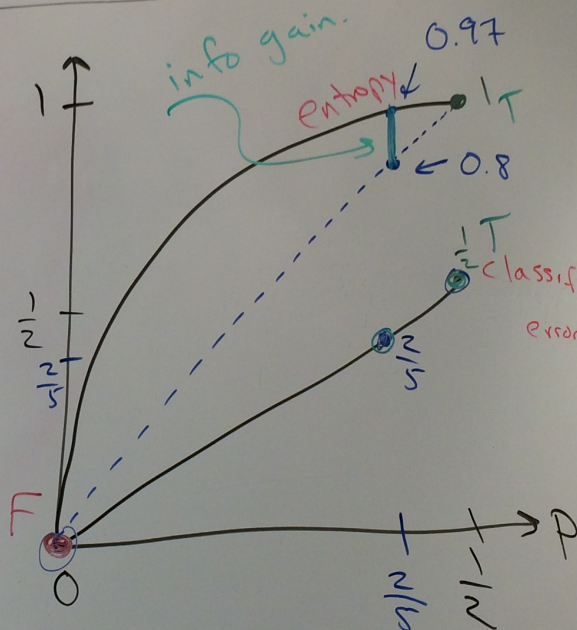 info gain.
0.97
entropy
1
1 T
0.8
1/2 T
classif
error
1/2
2/5
2/5
F
0
2/5
1/2
P